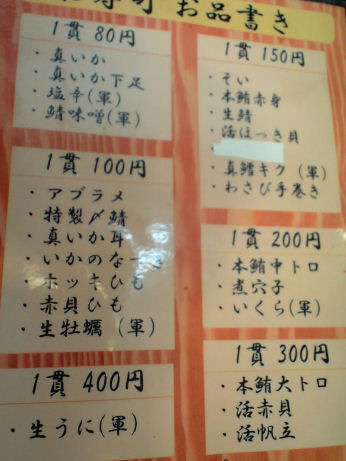 寿司 お品書き
1貫 80円
・真いか
・真いか下足
・塩辛(軍)
・鯖味噌(軍)
1貫 100円
・アブラメ
・特製〆鯖
・真いか耳
・ホッキひも
・赤貝ひも
・生牡蠣(軍)
1貫 400円
・生うに(軍)
1貫 150円
・そい
・本鮪赤身
・生鯖
・活ほっき貝
・真鱈キク(軍)
・わさび手巻き
1貫 200円
・本鮪中トロ
・煮穴子
・いくら(軍)
1貫 300円
・本鮪大トロ
・活赤貝
・活帆立